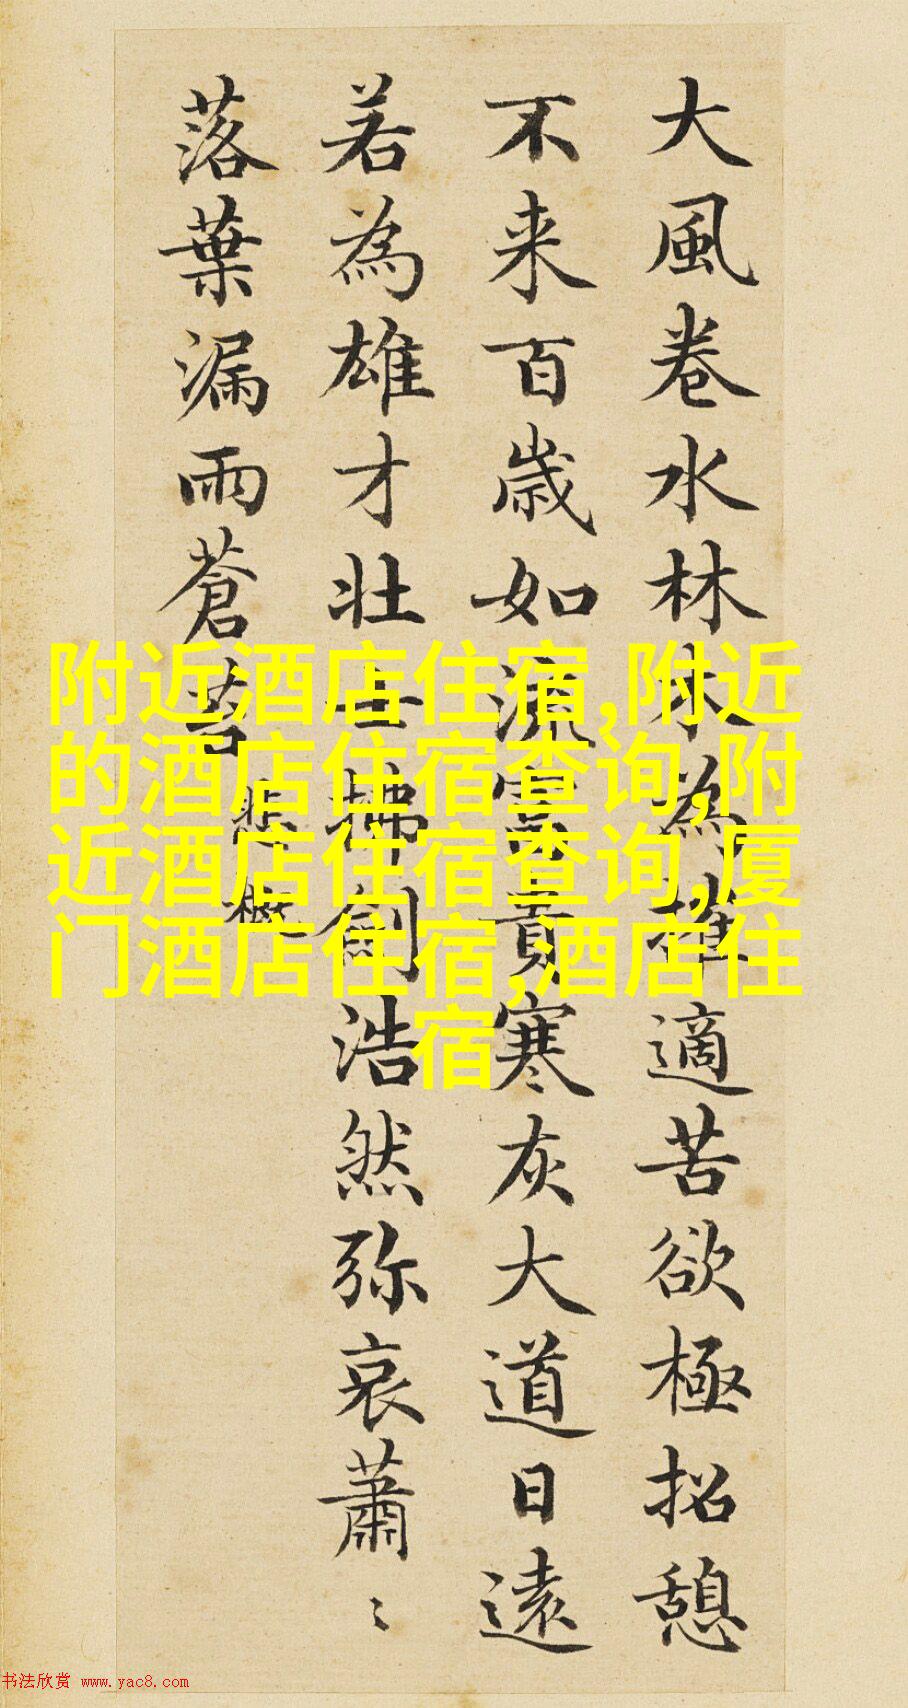 大風卷水林木為摧適苦欲極招憩
不来百歲如流富貴寒灰大道日遠
若為雄才壮士拂劍浩然弥哀蕭〻
落葉漏雨蒼苔
悲概
附近酒店住宿,附近
的酒店住宿查询,附
近酒店住宿查询,厦
门酒店住宿,酒店住
宿
书法欣赏 www.yac8.com